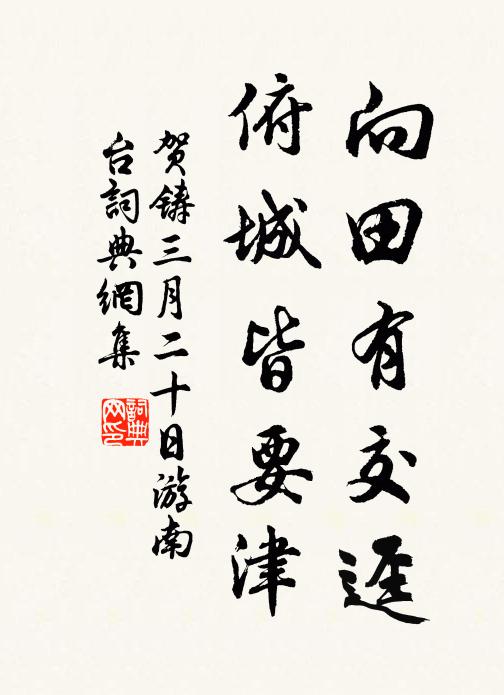 向田有交逕
俯城皆要津
賀鑄三月二十日游南
台詞典網集
詞典网印